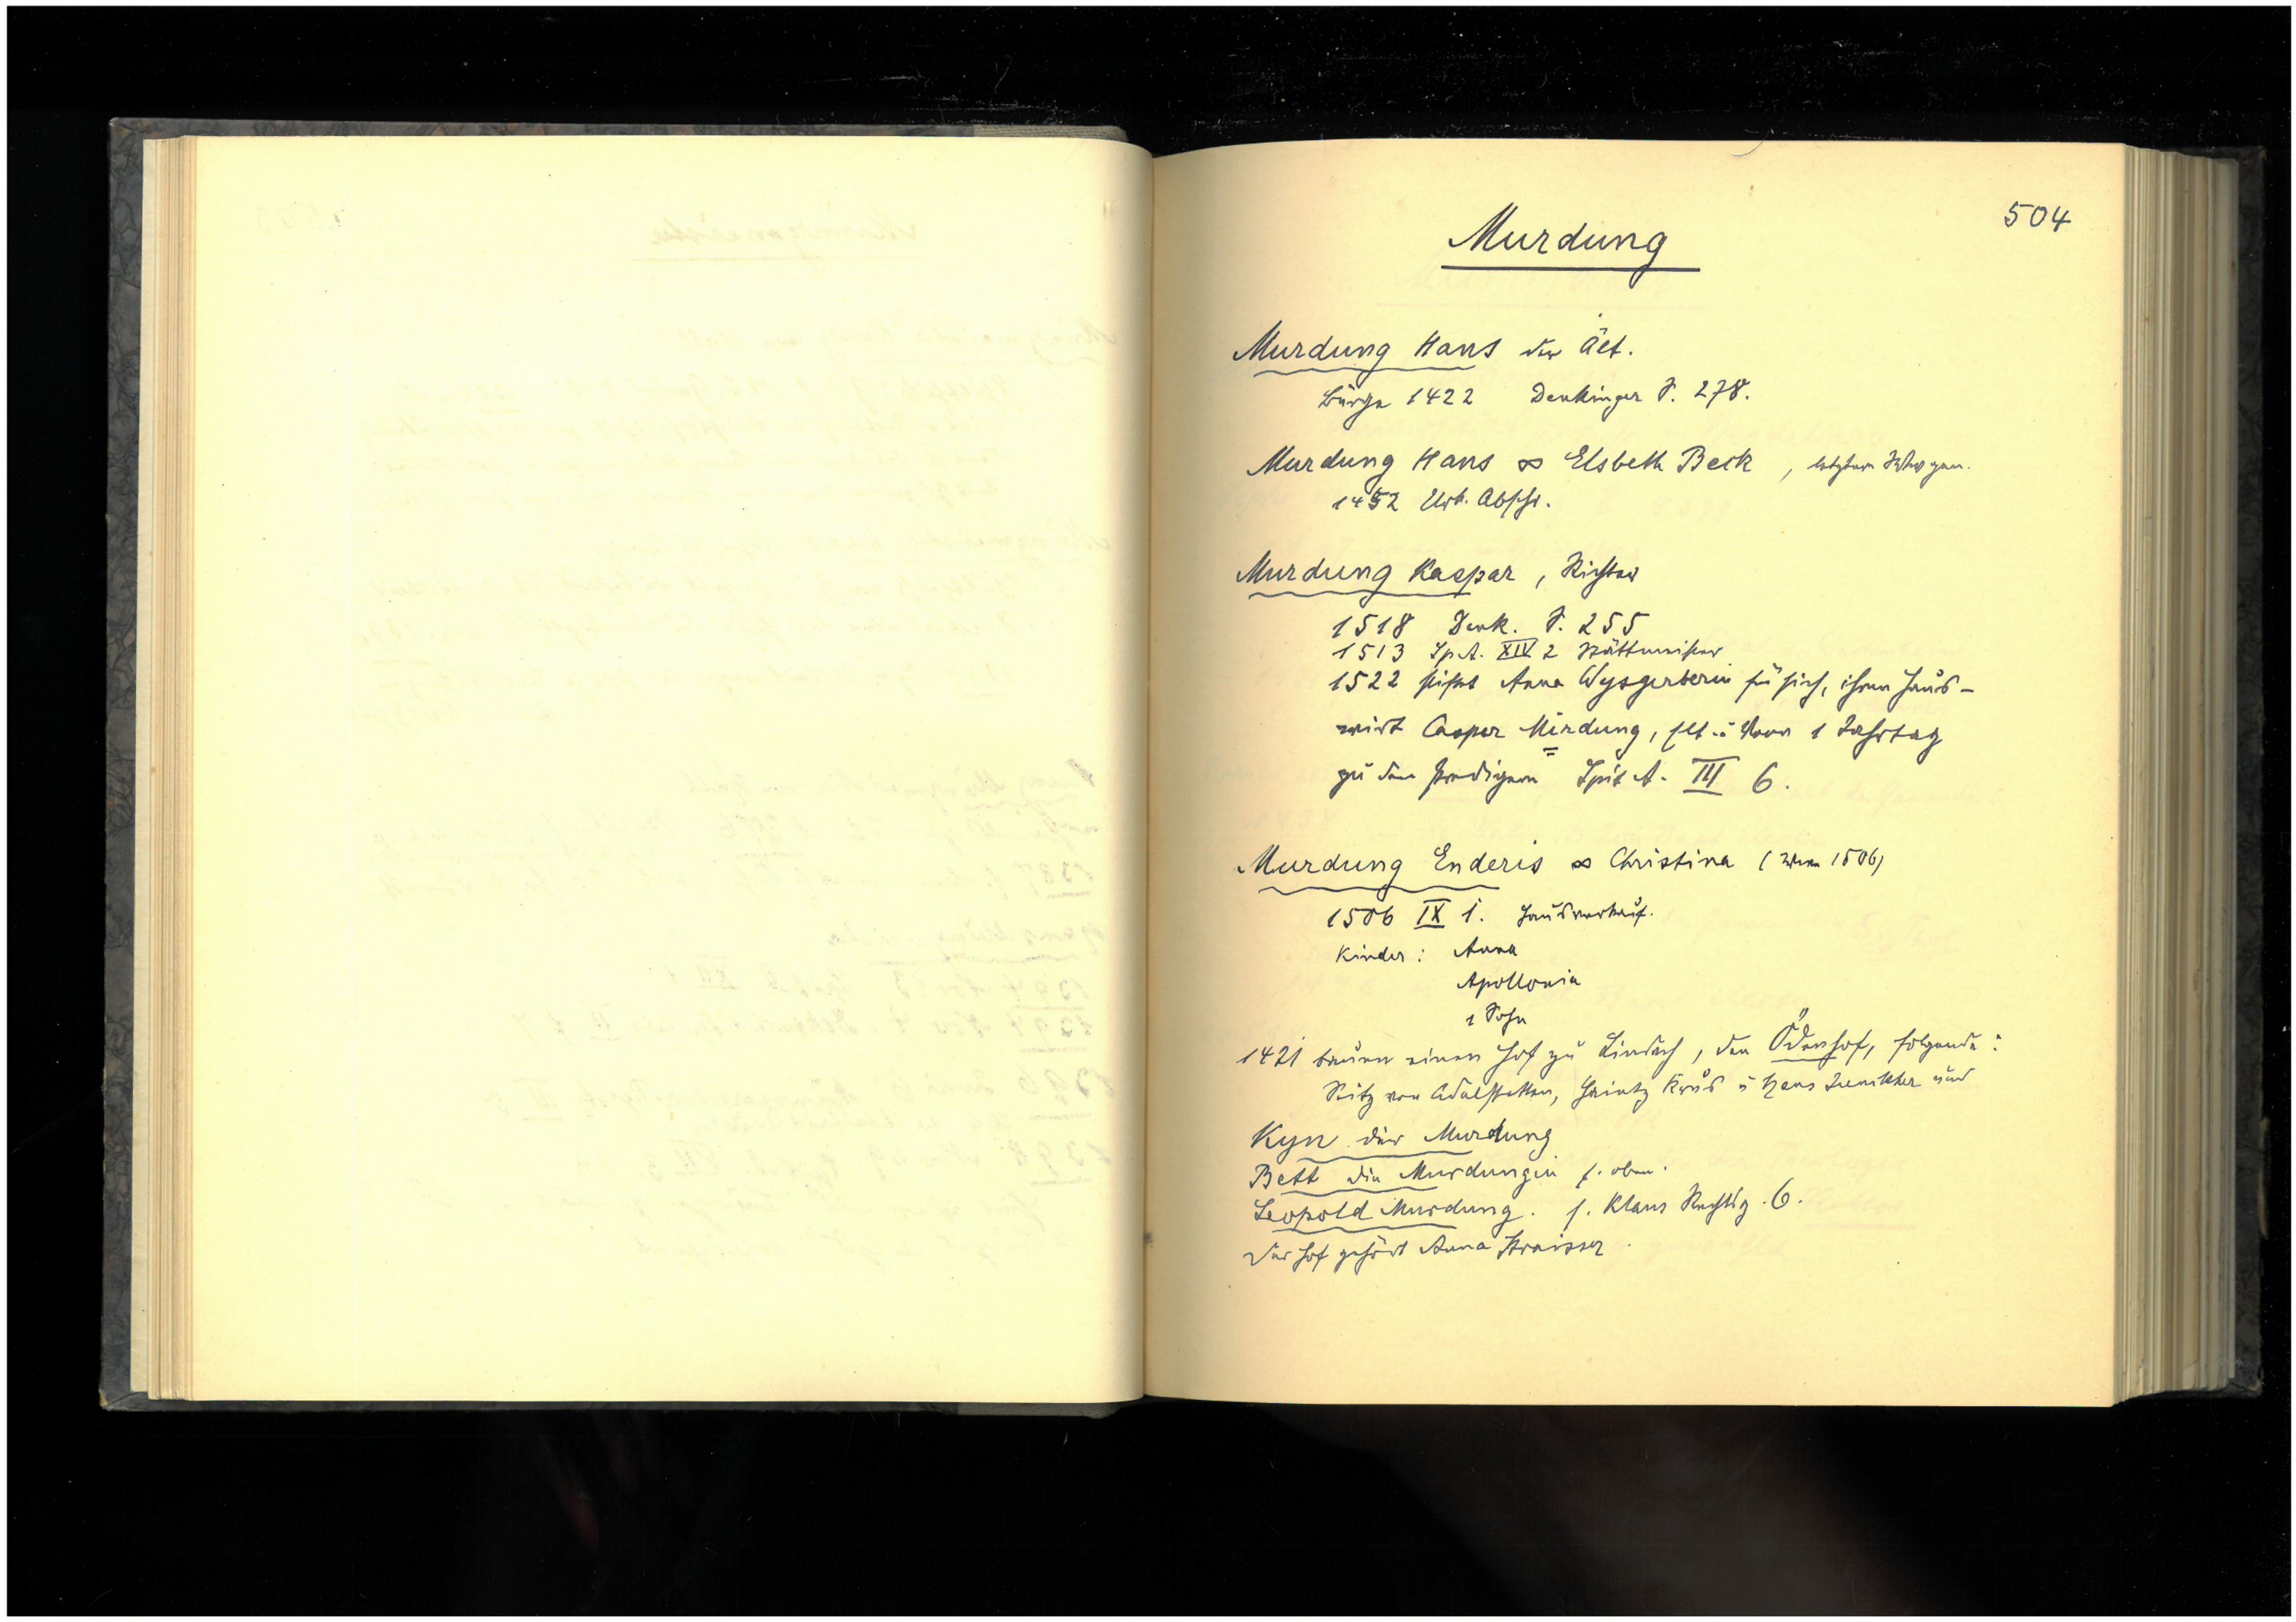 504
Murdung
Murdung Hans der Ält.
Bürge 1422 Denkinger S. 278.
Murdung Hans ∞ Elsbeth Beck, letztere
1452 Urk. Abschr.
Murdung Kaspar, Richter
1518 Denk. S. 255
1513 Sp. A. XIV 2 Stättmeister
1522 stiftet Anna Wysgerberin für sich, ihren Haus-
wirt Caspar Mirdung, 1 Jahrtag
zu den Predigern Spit A. III 6.
Murdung Enderis ∞ Christina (Wwe 1506)
1506 IX 1. Hausverkauf.
Kinder: Anna
Apollonia
1 Sohn
1421 bauen einen Hof zu Lindach, den Ödenhof, folgende:
Seitz von Adelstetten, Haintz u Hans und
Kyn der Murdung
Bett die Murdungin s. oben.
Leopold Murdung. s. Klaus 6.
Der Hof gehört Anna Straisser.